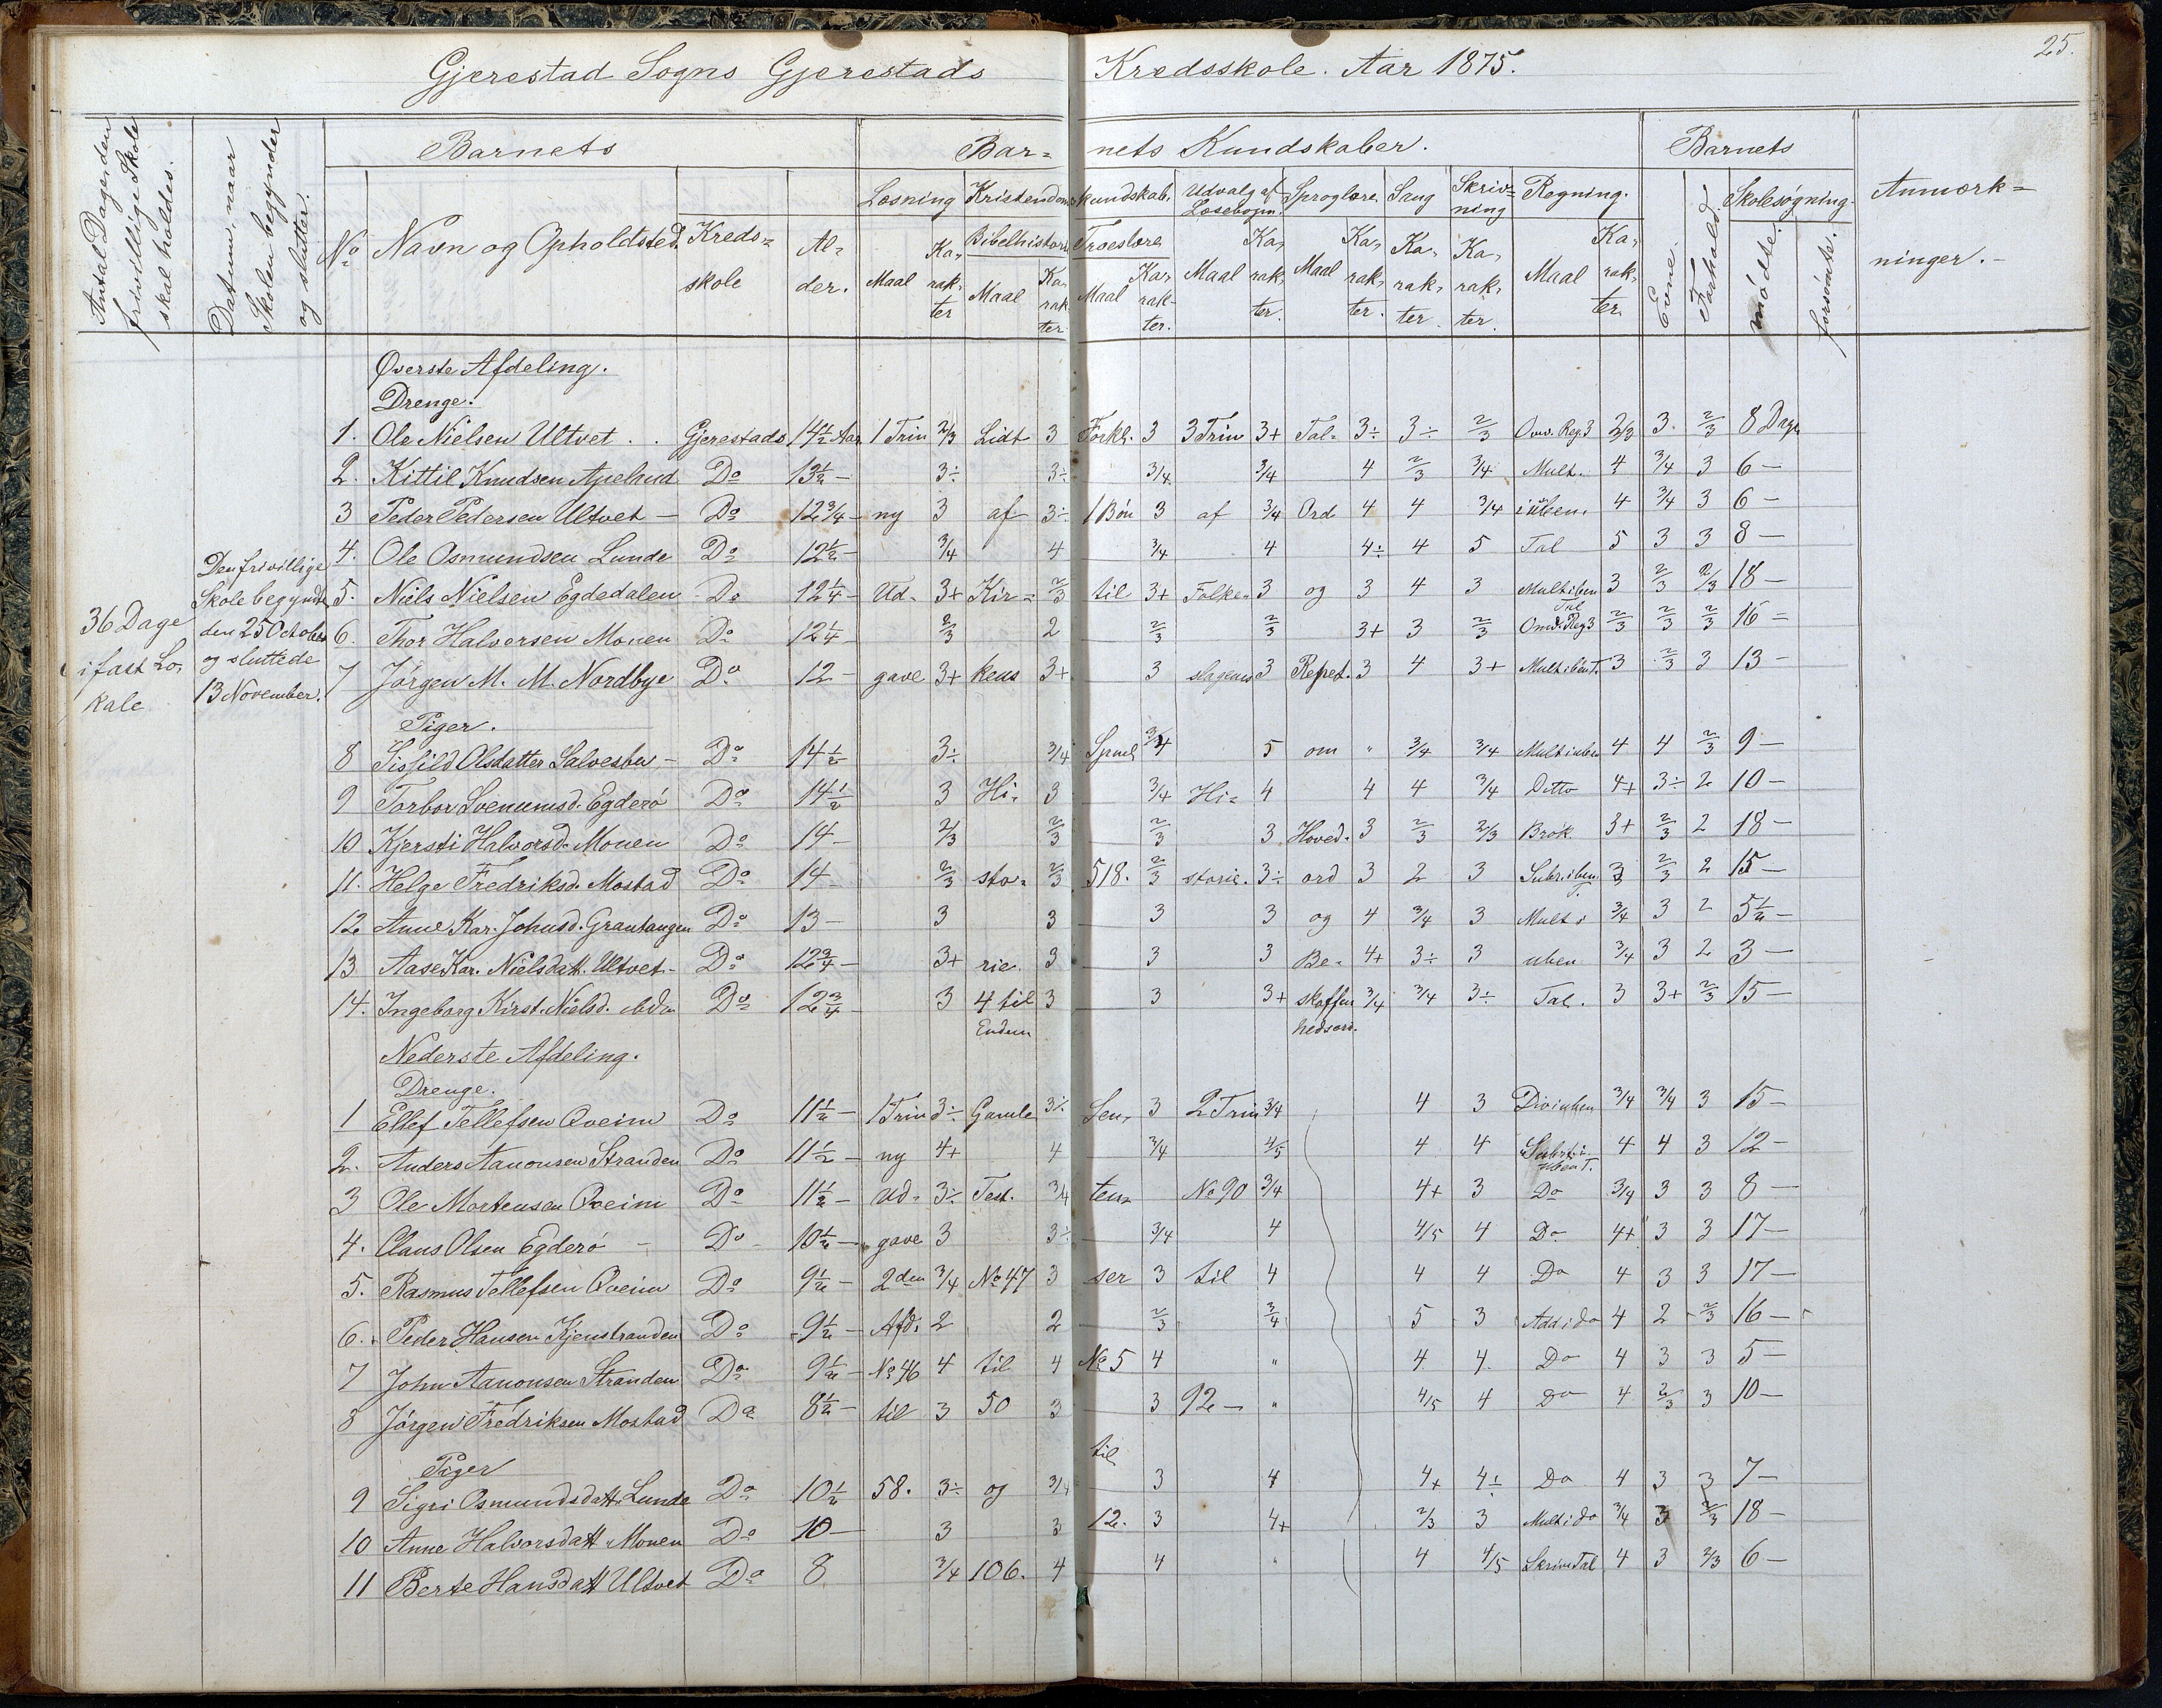 25.
Gjerestad Sogns Gjerestads Kredsskole. Aar 1875.
Antal Dage, den frivillige Skole skal holdes.
Datum, naar Skolen begynder og slutter.
Barnets
Barnets Kundskaber.
Barnets
Anmærkninger.
No Navn og Opholdsted. Kredsskole Alder.
Læsning Kristendomskundskab. Udvalg af Læsebogen. Sproglære. Sang Skrivning Regning.
Bibelhistorie Troeslære
Maal Karakter Maal Karakter Maal Karakter. Maal Karakter. Maal Karakter. Karakter. Karakter. Maal Karakter
Evne. Forhold. Skolesøgning. mødte. forsømte.
36 Dage i fast Lokale
Den frivillige Skole begyndte den 25 October og sluttede 13 November.
Øverste Afdeling.
Drenge.
1. Ole Nielsen Ultvet . . Gjerestads 14½ Aar 1 Trin 2/3 Lidt 3 Forkl. 3 3 Trin 3+ Tal- 3÷ 3÷ 2/3 Omv. Reg. 3 2/3 3. 2/3 8 Dage
2. Kittil Knudsen Apelrud Do 13½ – 3÷ 3÷ 3/4 3/4 4 2/3 3/4 Mult. 4 3/4 3 6 –
3 Peder Pedersen Ultvet – Do 12 3/4 – ny 3 af 3÷ 1 Bøn 3 af 3/4 Ord 4 4 3/4 i uben. 4 3/4 3 6 –
4. Ole Osmundsen Lunde Do 12½ – 3/4 4 3/4 4 4÷ 4 5 Tal 5 3 3 8 –
5. Niels Nielsen Egdedalen Do 12¼ – Ud- 3+ Kir- 2/3 til 3+ Folke- 3 og 3 4 3 Mult i ben Tal 3 2/3 2/3 18 –
6. Thor Halvorsen Monen Do 12¼ 2/3 2 2/3 2/3 3+ 3 2/3 Omv. Reg 3 2/3 2/3 2/3 16 =
7 Jørgen M. M. Nordbye Do 12 – gave 3+ kens 3+ 3 slagenes 3 Repet. 3 4 3+ Mult i ben T. 3 2/3 3 13 –
Piger.
8 Sisfild Olsdatter Salvesbu – Do 14½ 3÷ 3/4 Spml 3/4 5 om " 3/4 3/4 Mult i uben 4 4 2/3 9 –
9 Torbor Svenumsd. Egderø Do 14½ 3 Hi- 3 3/4 Hi- 4 4 4 3/4 Ditto 4+ 3÷ 2 10 –
10 Kjersti Halvorsd. Monen Do 14 – 2/3 2/3 2/3 3 Hoved- 3 2/3 2/3 Brøk 3+ 2/3 2 18 –
11. Helge Fredriksd. Mostad Do 14 – 2/3 sto- 2/3 518. 2/3 storie. 3÷ ord 3 2 3 Subr. i ben T. 3 2/3 2 15 –
12 Anne Kar. Johnsd. Grautangen Do 13 – 3 3 3 3 og 4 3/4 3 Mult i 3/4 3 2 5½ –
13 Aase Kar. Nielsdatt. Ultvet – Do 12 3/4 – 3+ rie. 3 3 3 Be- 4+ 3÷ 3 uben 3/4 3 2 3 –
14. Ingeborg Kirst. Nielsd. ibdm Do 12 3/4 3 4 til Enden 3 3 3+ skaffenhedsord. 3/4 3/4 3÷ Tal. 3 3+ 2/3 15 –
Nederste Afdeling.
Drenge.
1 Ellef Tellefsen Qveim Do 11½ – 1 Trin 3÷ Gamle 3÷ Sen- 3 2 Trin 3/4 4 3 Div i uben 3/4 3/4 3 15 –
2. Anders Aanonsen Stranden Do 11½ – ny 4+ 4 3/4 4/5 4 4 Subtr i uben T. 4 4 3 12 –
3 Ole Mortensen Qveim Do 11½ – Ud- 3÷ Test. 3/4 ten- No 90 3/4 4+ 3 Do 3/4 3 3 8 –
4. Claus Olsen Egderø – Do 10½ – gave 3 3÷ 3/4 4 4/5 4 Do 4+ 3 3 17 –
5. Rasmus Tellefsen Qveim Do 9½ – 2den 3/4 No 47 3 ser 3 til 4 4 4 Do 4 3 3 17 –
6. Peder Hansen Kjenstranden Do 9½ – Afd. 2 2 2/3 3/4 5 3 Add i do 4 2 2/3 16 –
7 John Aanonsen Stranden Do 9½ – No 46 4 til 4 No 5 4 " 4 4. Do 4 3 3 5 –
8 Jørgen Fredriksen Mostad Do 8½ – til 3 50 3 3 92 – " 4/5 4 Do 4 2/3 3 10 –
Piger
9 Sigri Osmundsdatt. Lunde Do 10½ 58. 3÷ og 3/4 til 3 4 4+ 4÷ Do 4 3 3 7 –
10 Anne Halvorsdatt. Monen Do 10 – 3 3 12. 3 4+ 2/3 3 Mult i do 3/4 3 2/3 18 –
11 Berte Hansdatt Ultvet Do 8 3/4 106. 4 4 " 4 4/5 Skrive Tal 4 3 2/3 6 –